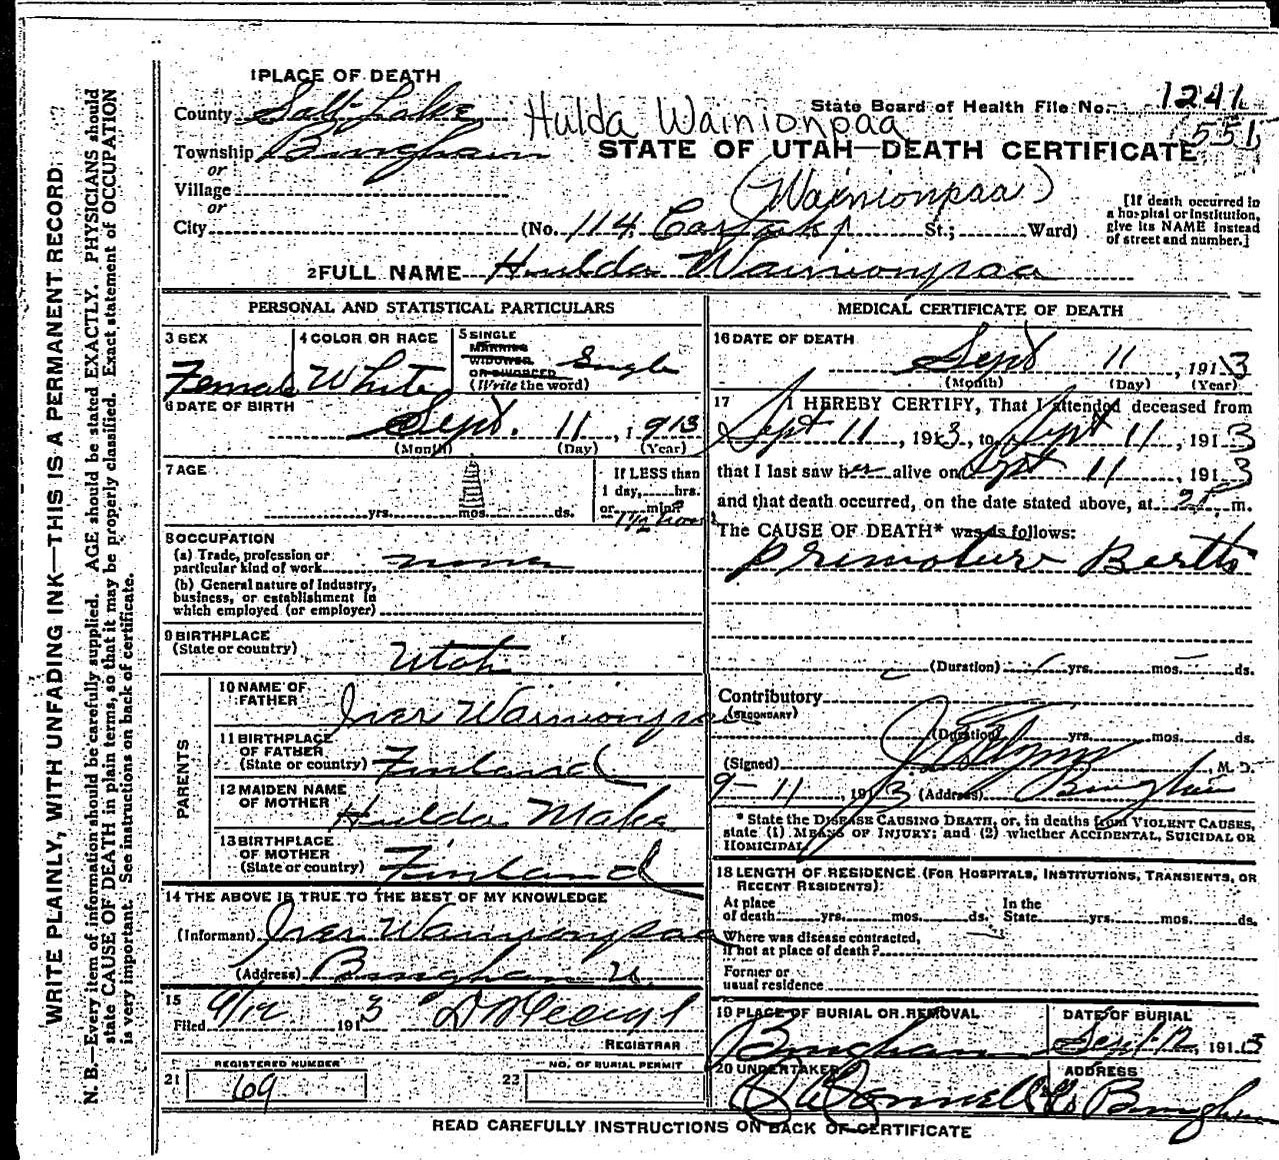 1 PLACE OF DEATH
County Salt Lake
Hulda Wainionpaa
State Board of Health File No. 1241
551
Township Bingham
STATE OF UTAH—DEATH CERTIFICATE
or
Village
(Wainionpaa)
or
City (No. 114 St.; Ward)
[If death occurred in
a hospital or institution,
give its NAME instead
of street and number.]
2 FULL NAME Hulda Wainionpaa
PERSONAL AND STATISTICAL PARTICULARS
3 SEX
Female
4 COLOR OR RACE
White
5 SINGLE
MARRIED
WIDOWED
OR DIVORCED
(Write the word)
Single
6 DATE OF BIRTH
Sept. 11, 1913
(Month) (Day) (Year)
7 AGE
yrs. mos. ds.
If LESS than
1 day, hrs.
or min?
1 1/2 hour
8 OCCUPATION
(a) Trade, profession or
particular kind of work none
(b) General nature of Industry,
business, or establishment in
which employed (or employer)
9 BIRTHPLACE
(State or country)
Utah
PARENTS
10 NAME OF
FATHER
Iver Wainionpaa
11 BIRTHPLACE
OF FATHER
(State or country) Finland
12 MAIDEN NAME
OF MOTHER
Hulda Maka
13 BIRTHPLACE
OF MOTHER
(State or country) Finland
14 THE ABOVE IS TRUE TO THE BEST OF MY KNOWLEDGE
(Informant) Iver Wainionpaa
(Address) Bingham U.
15
Filed 9/12 1913
REGISTRAR
REGISTERED NUMBER
21 69
NO. OF BURIAL PERMIT
22
MEDICAL CERTIFICATE OF DEATH
16 DATE OF DEATH
Sept 11, 1913
(Month) (Day) (Year)
17 I HEREBY CERTIFY, That I attended deceased from
Sept 11, 1913, to Sept 11, 1913
that I last saw her alive on Sept 11, 1913
and that death occurred, on the date stated above, at 2P.m.
The CAUSE OF DEATH* was as follows:
primature Berth
(Duration) yrs. mos. ds.
Contributory
(SECONDARY)
(Duration) yrs. mos. ds.
(Signed) , M. D.
9-11, 1913 (Address) Bingham
* State the DISEASE CAUSING DEATH, or, in deaths from VIOLENT CAUSES,
state (1) MEANS OF INJURY; and (2) whether ACCIDENTAL, SUICIDAL OR
HOMICIDAL.
18 LENGTH OF RESIDENCE (FOR HOSPITALS, INSTITUTIONS, TRANSIENTS, OR
RECENT RESIDENTS):
At place
of death yrs. mos. ds.
In the
State yrs. mos. ds.
Where was disease contracted,
if not at place of death?
Former or
usual residence
19 PLACE OF BURIAL OR REMOVAL
Bingham
DATE OF BURIAL
Sept. 12, 1913
20 UNDERTAKER
ADDRESS
Bingham
READ CAREFULLY INSTRUCTIONS ON BACK OF CERTIFICATE
WRITE PLAINLY, WITH UNFADING INK—THIS IS A PERMANENT RECORD.
N. B.—Every item of information should be carefully supplied. AGE should be stated EXACTLY. PHYSICIANS should
state CAUSE OF DEATH in plain terms, so that it may be properly classified. Exact statement of OCCUPATION
is very important. See instructions on back of certificate.